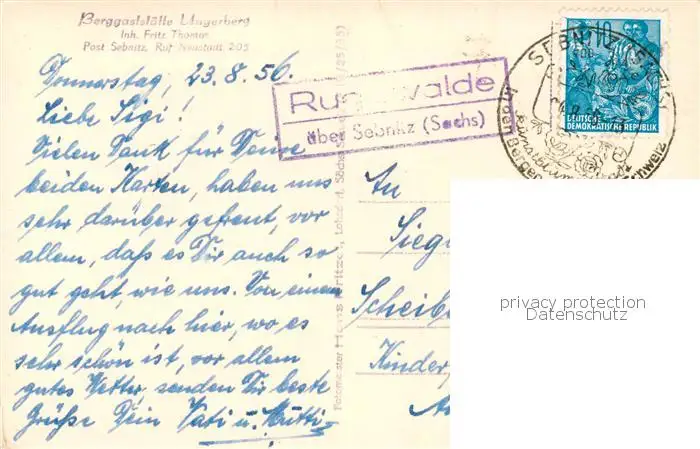 Berggaststätte Ungerberg
Inh. Fritz Thomas
Post Sebnitz, Ruf Neustadt 205
Donnerstag, 23.8.56.
Liebe Sigi!
Vielen Dank für Deine
beiden Karten, haben uns
sehr darüber gefreut, vor
allem, daß es Dir auch so
gut geht, wie uns. Von einem
Ausflug nach hier, wo es
sehr schön ist, vor allem
gutes Wetter, senden Dir beste
Grüße Dein Vati u. Mutti.
über Sebnitz (Sachs)
SEBNITZ (SACHS)
10
DEUTSCHE
DEMOKRATISCHE REPUBLIK
An
Scheiben
Kinder
privacy protection
Datenschutz